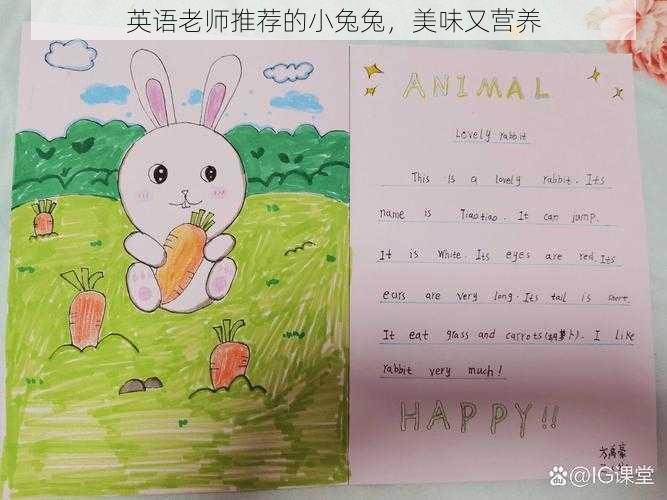 英语老师推荐的小兔兔，美味又营养
ANIMAL
Lovely rabbit
This is a lovely rabbit. Its
name is Tiaotiao. It can jump.
It is white. Its eyes are red. Its
ears are very long. Its tail is short.
It eat grass and carrots(胡萝卜). I like
rabbit very much!
HAPPY!!
@IG课堂